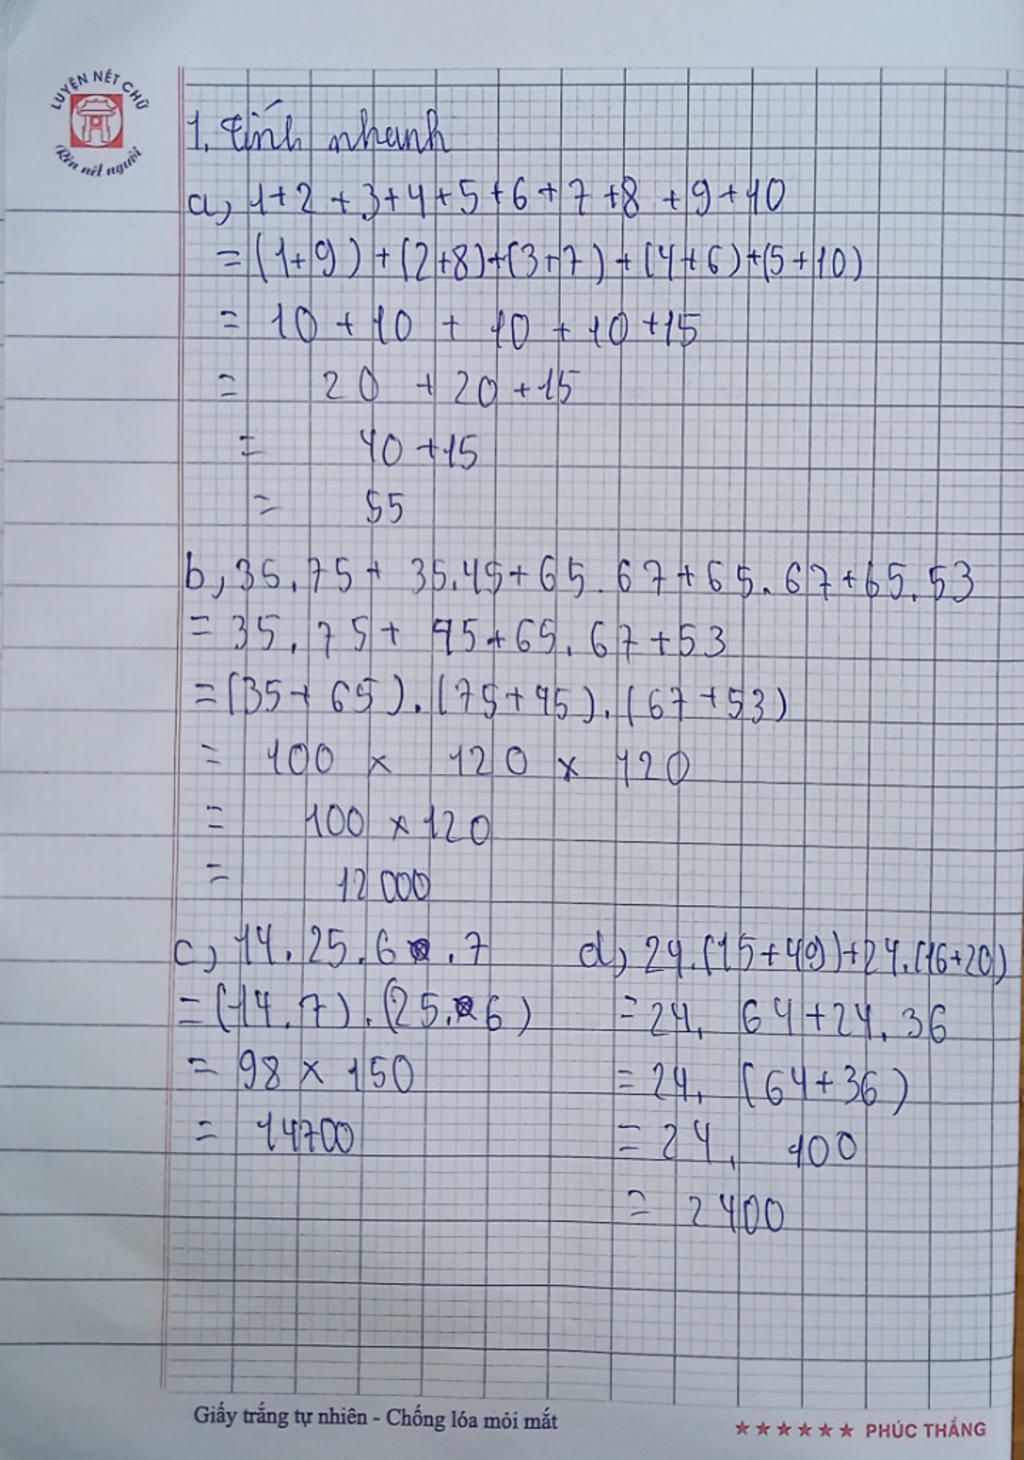 LUYỆN NÉT CHỮ
Rèn nết người
1. tính nhanh
a, 1+2+3+4+5+6+7+8+9+10
=(1+9)+(2+8)+(3+7)+(4+6)+(5+10)
= 10+10+10+10+15
= 20+20+15
= 40+15
= 55
b, 35.75+ 35.45+65.67+65.67+65.53
= 35.75+ 45+65.67+53
=(35+65).(75+45).(67+53)
= 100 x 120 x 120
= 100 x 120
= 12000
c, 14.25.6.7
=(14.7).(25.6)
= 98 x 150
= 14700
d, 24.(15+49)+24.(16+20)
= 24. 64+24.36
= 24. (64+36)
= 24. 100
= 2400
Giấy trắng tự nhiên - Chống lóa mỏi mắt
★★★★★★ PHÚC THẮNG